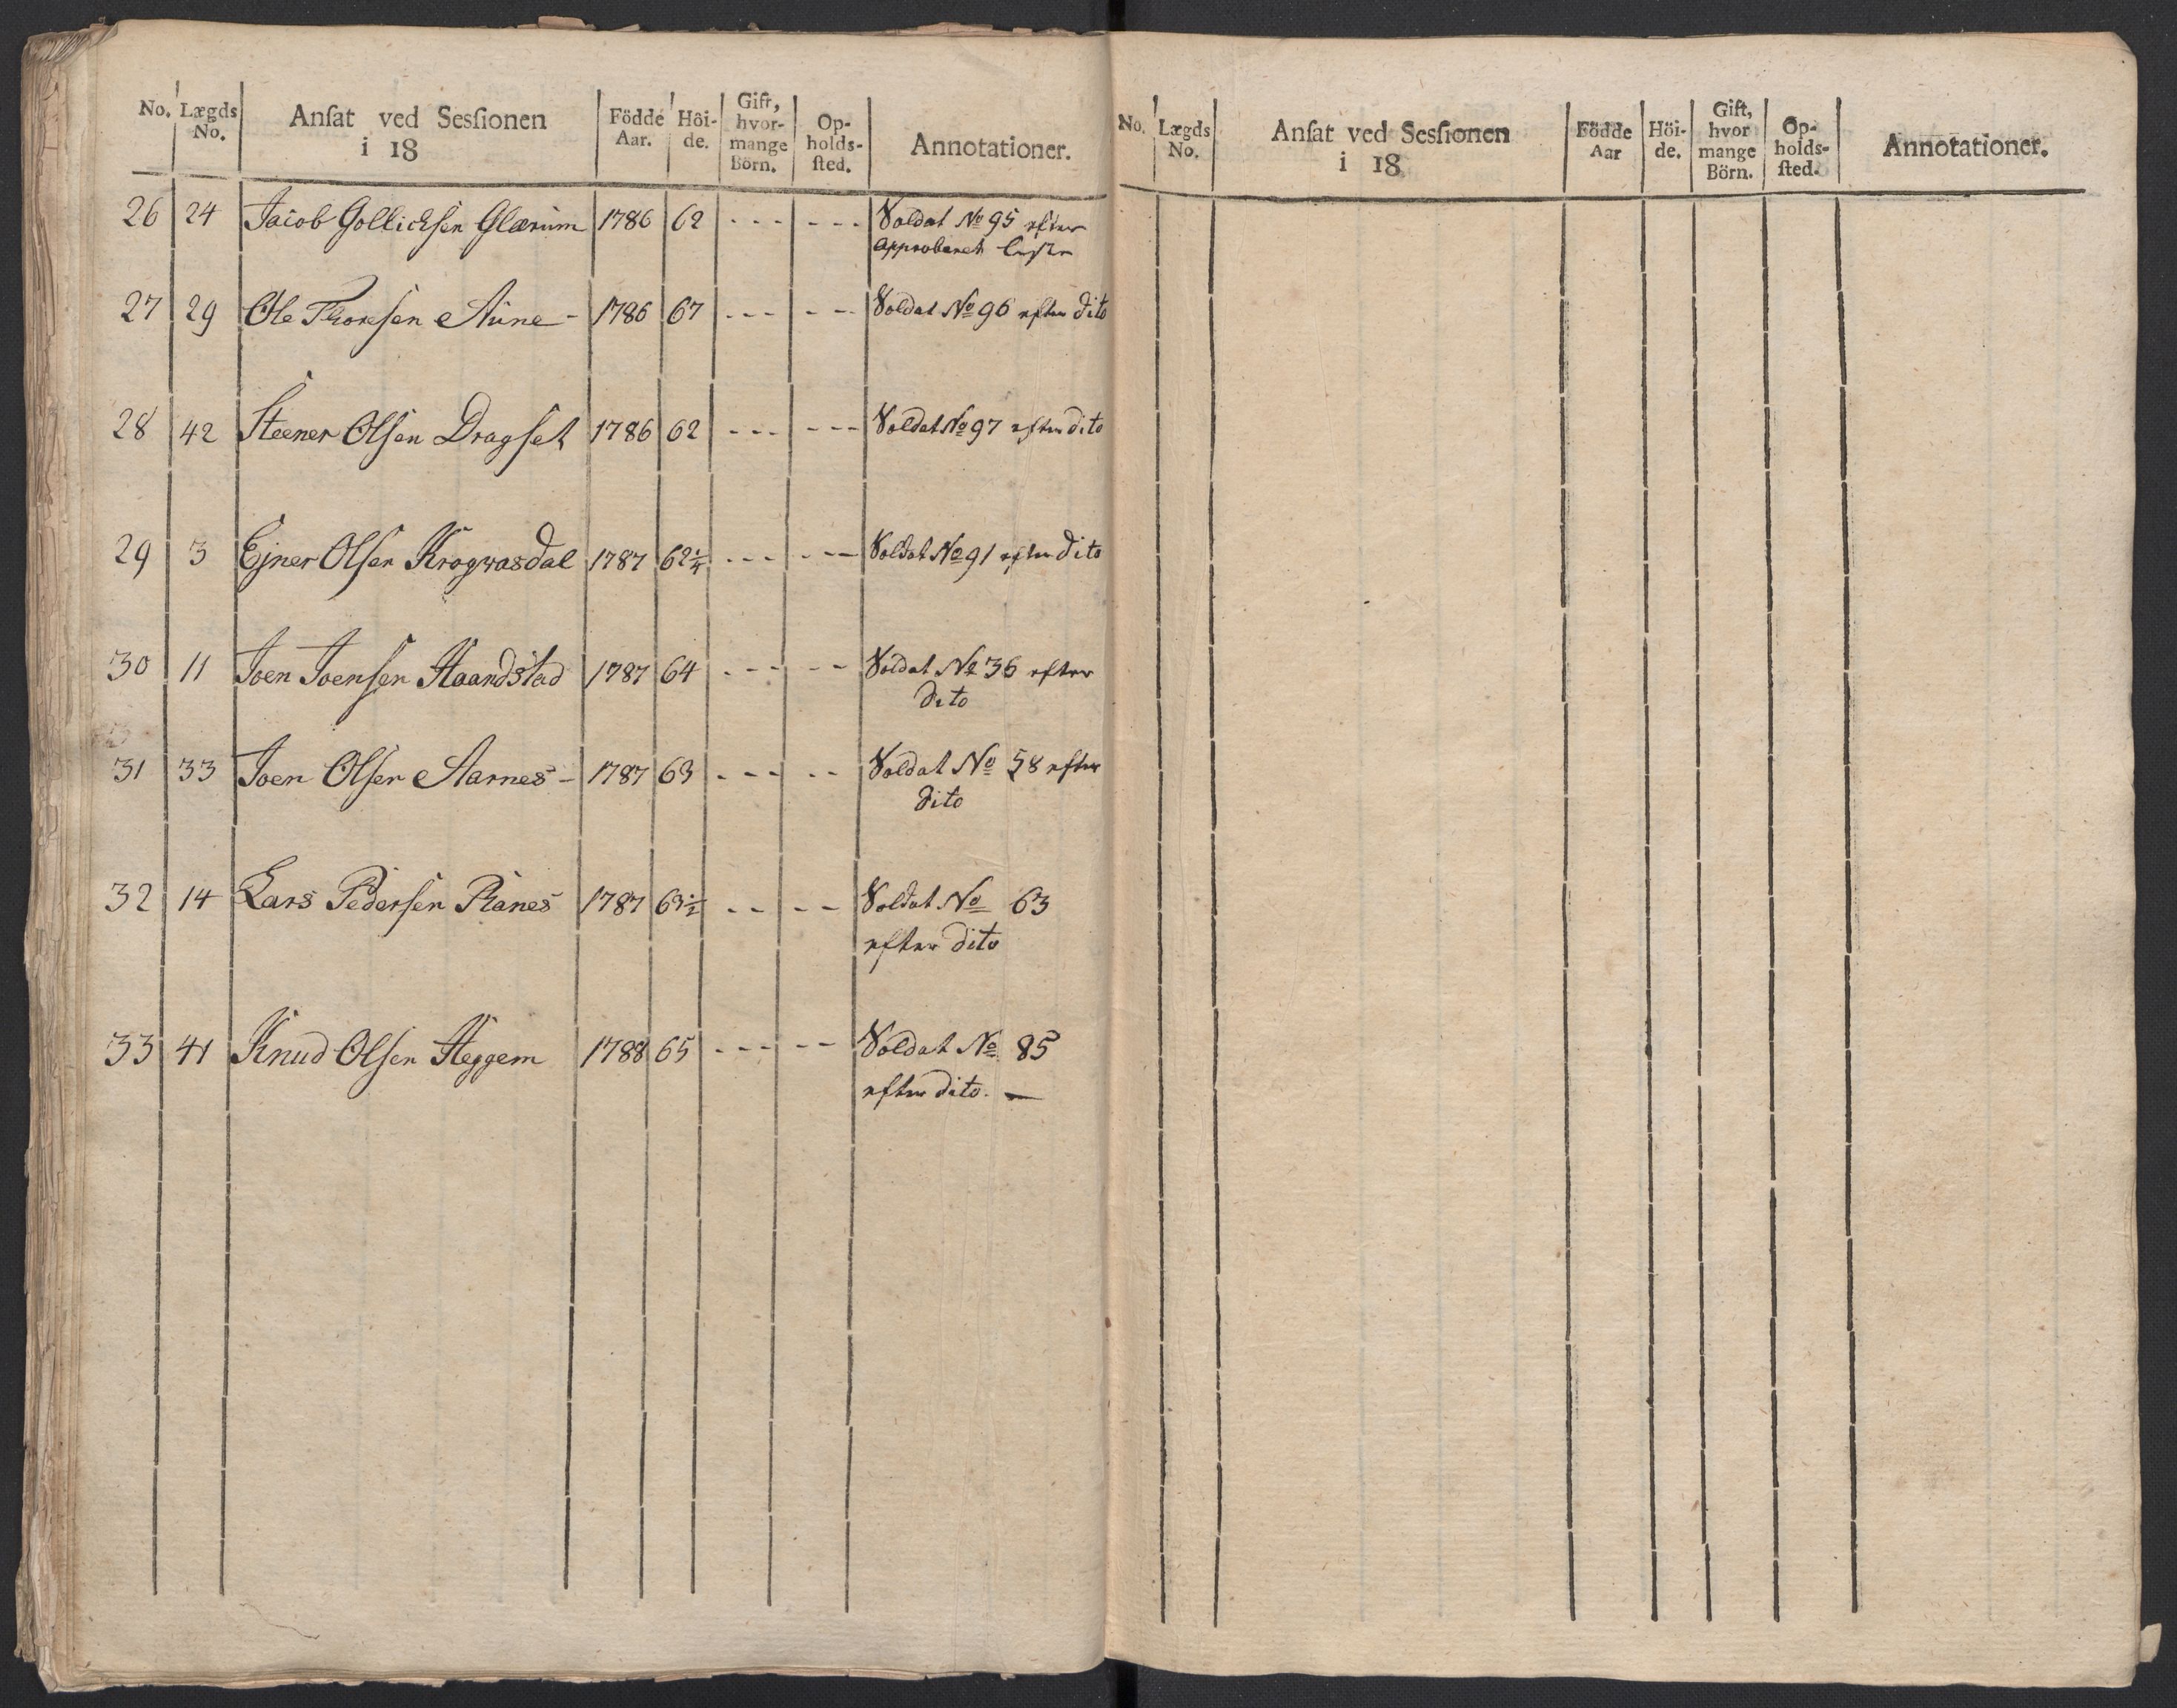 No. Lægds No. Anſat ved Sesſionen i 18 Födde Aar. Höi-de. Gift, hvor-mange Börn. Op-holds-ſted. Annotationer.
26 24 Jacob Gollichsen Glærum 1786 62 - - - - - - Soldat No 95 efter
Approberet Liste
27 29 Ole Thoresen Aune - 1786 67 - - - - - - Soldat No 96 efter dito
28 42 Steener Olsen Dragset 1786 62 - - - - - - Soldat No 97 efter dito
29 3 Ejner Olsen Krogwasdal 1787 62¼ - - - - - - Soldat No 91 efter dito
30 11 Joen Joensen Haandstad 1787 64 - - - - - Soldat No 36 efter
dito
31 33 Joen Olsen Aarnes - 1787 63 - - - - - Soldat No 58 efter
dito
32 14 Lars Pedersen Ranes 1787 63½ - - - - Soldat No 63
efter dito
33 41 Knud Olsen Heggem 1788 65 - - - - - Soldat No 85
efter dito. —
No. Lægds No. Anſat ved Sesſionen i 18 Födde Aar Höi-de. Gift, hvor mange Börn. Op-holds-ſted. Annotationer.